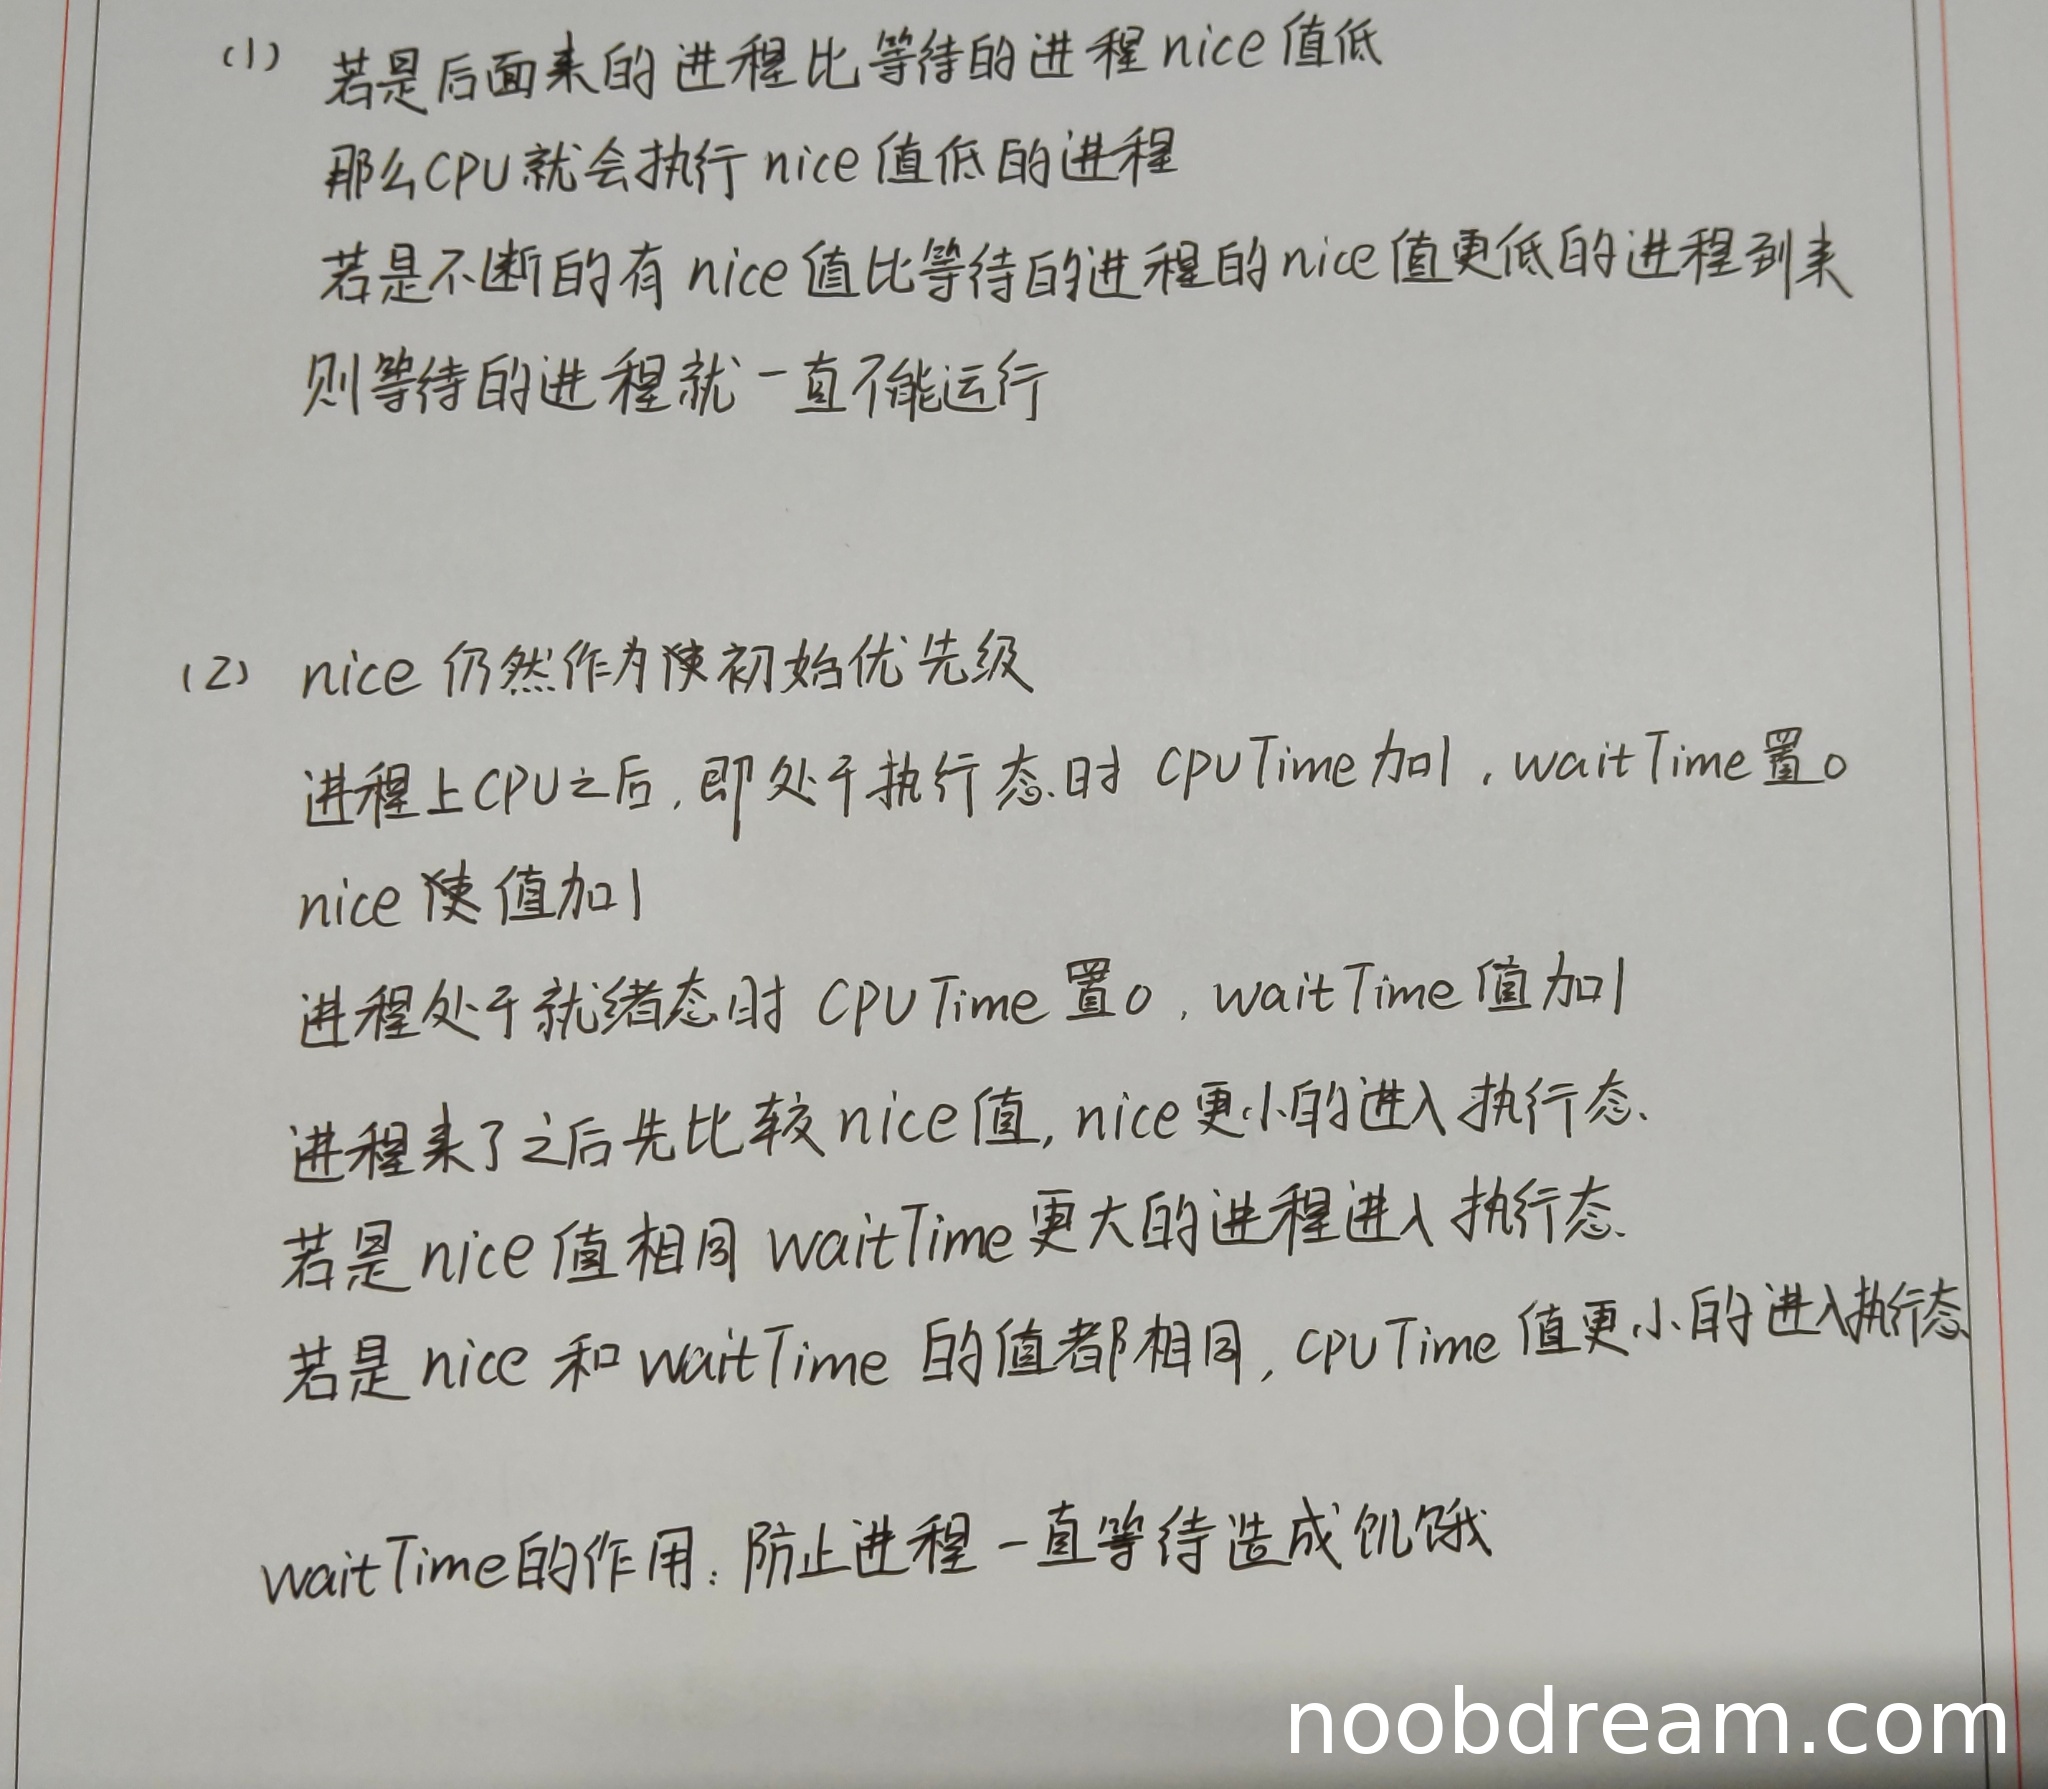 (1) 若是后面来的进程比等待的进程nice值低
那么CPU就会执行nice值低的进程
若是不断的有nice值比等待的进程的nice值更低的进程到来
则等待的进程就一直不能运行
(2) nice仍然作为初始优先级
进程上CPU之后,即处于执行态时 cpuTime加1,waitTime置0
nice 值加1
进程处于就绪态时 CPUTime置0,waitTime值加1
进程来了之后先比较nice值,nice更小的进入执行态.
若是nice值相同 waitTime更大的进程进入执行态.
若是nice和waitTime的值都相同,cpuTime值更小的进入执行态
waitTime的作用:防止进程一直等待造成饥饿
noobdream.com